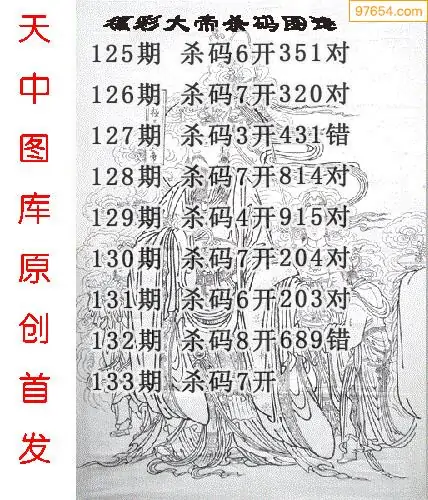 97654.com
福彩大帝杀码图迷
125期 杀码6开351对
126期 杀码7开320对
127期 杀码3开431错
128期 杀码7开814对
129期 杀码4开915对
130期 杀码7开204对
131期 杀码6开203对
132期 杀码8开689错
133期 杀码7开
天中图库原创首发